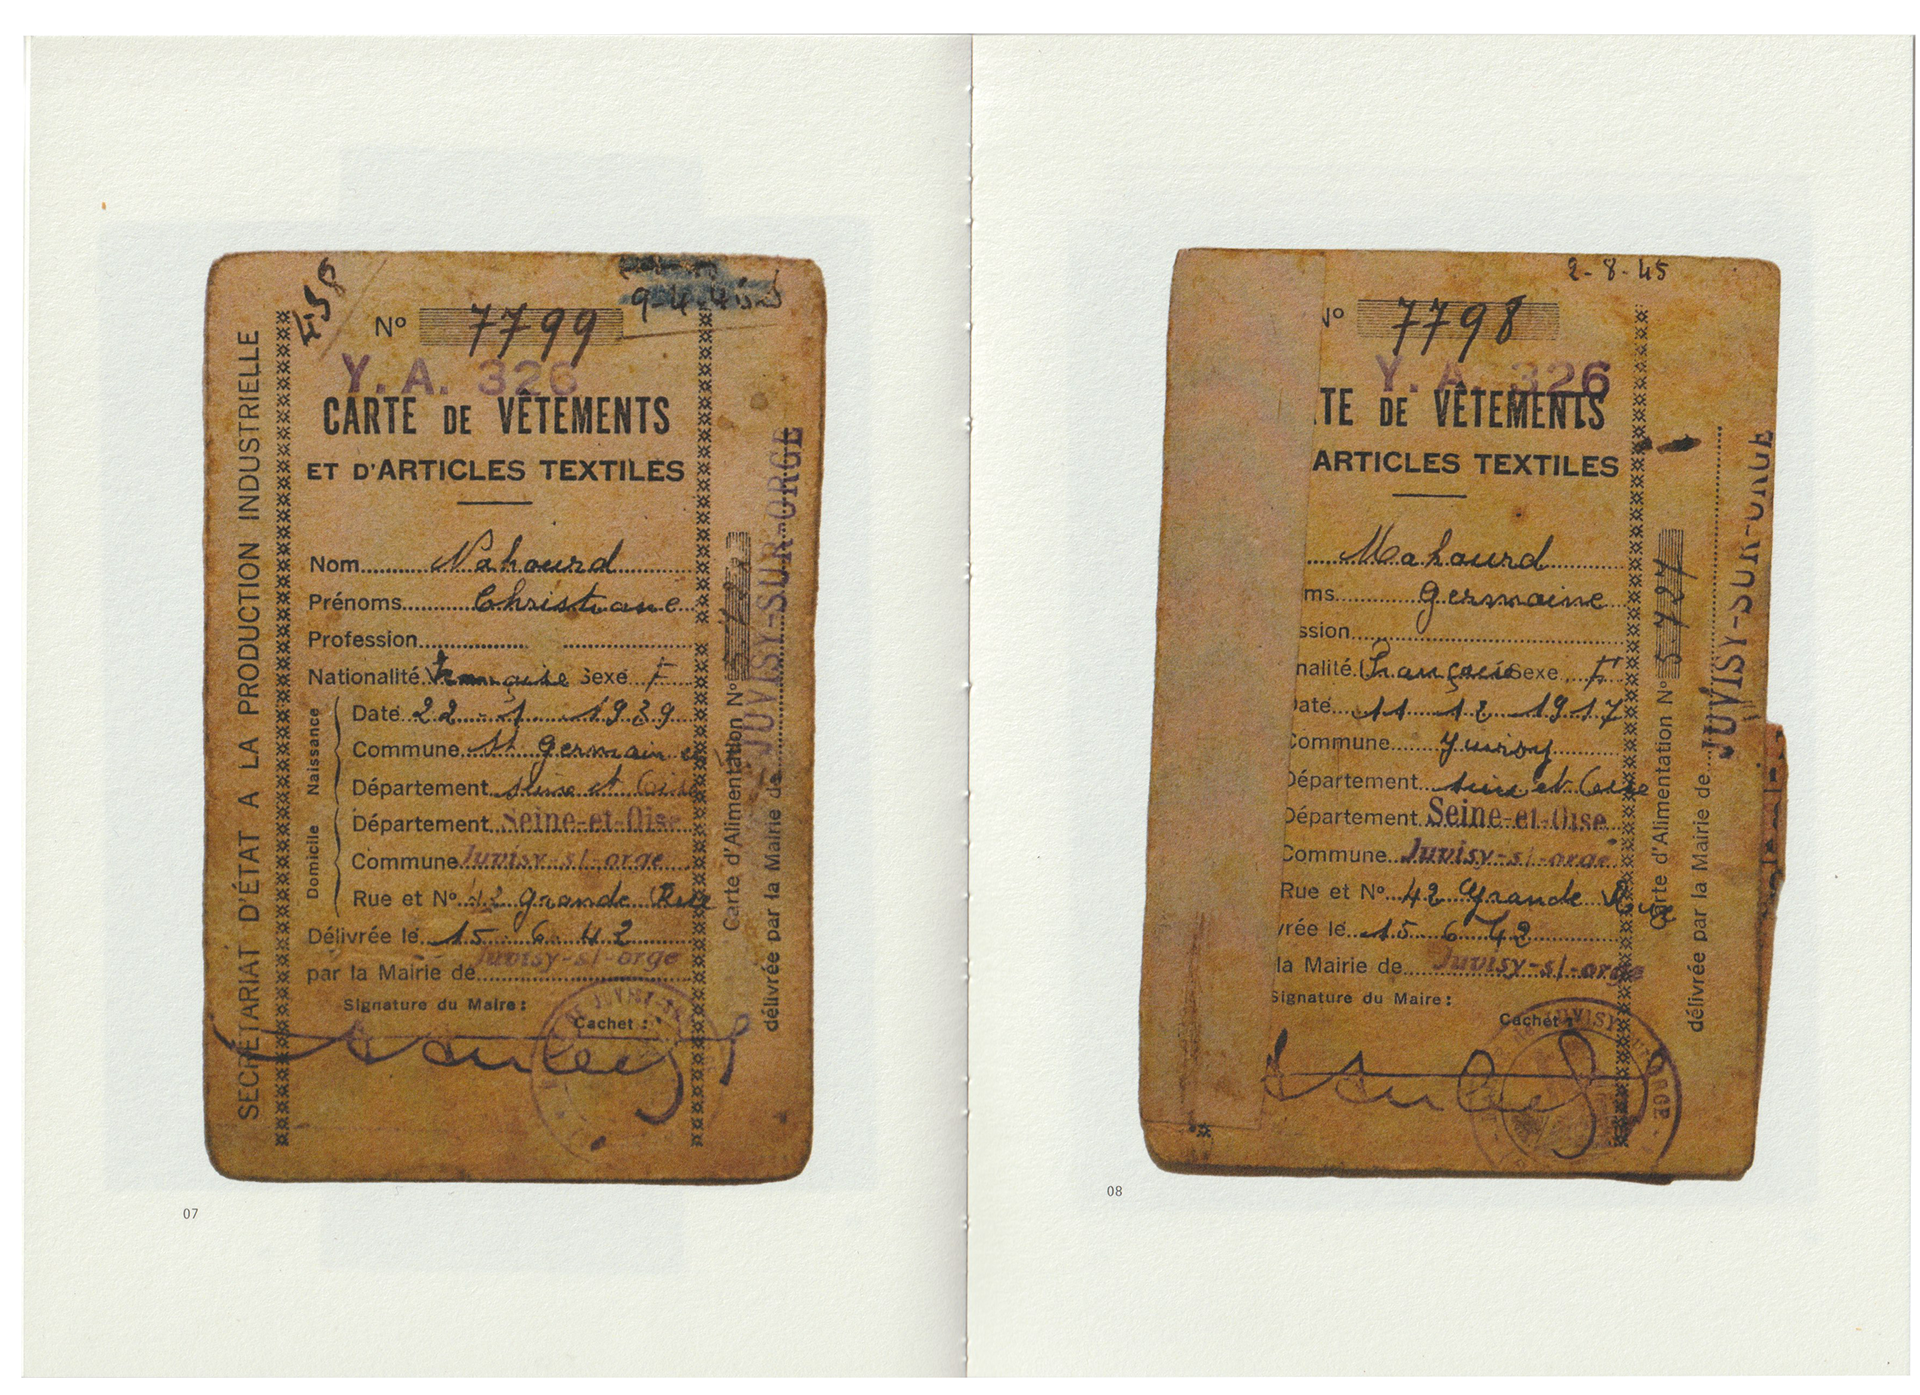 458
9-4-45
Nº 7799
Y. A. 326
CARTE DE VÊTEMENTS
ET D'ARTICLES TEXTILES
Nom Nahourd
Prénoms Christiane
Profession
Nationalité Française Sexe F
Naissance
Date 22 1 1939
Commune St Germain
Département Seine et Oise
Domicile
Département Seine-et-Oise
Commune Juvisy-s/-orge
Rue et Nº 42 Grande Rue
Délivrée le 15 6 42
par la Mairie de Juvisy-s/-orge
Signature du Maire :
Cachet :
SECRÉTARIAT D'ÉTAT A LA PRODUCTION INDUSTRIELLE
Carte d'Alimentation Nº
délivrée par la Mairie de JUVISY-SUR-ORGE
07
2-8-45
Nº 7798
Y. A. 326
TE DE VÊTEMENTS
ARTICLES TEXTILES
Mahourd
ms Germaine
ssion
nalité Française Sexe F
Date 11 12 1917
Commune Juvisy
Département Seine et Oise
Département Seine-et-Oise
Commune Juvisy-s/-orge
Rue et Nº 42 Grande Rue
vrée le 15 6 42
la Mairie de Juvisy-s/-orge
Signature du Maire :
Cachet :
Carte d'Alimentation Nº 5727
délivrée par la Mairie de JUVISY-SUR-ORGE
08